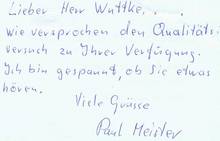 Lieber Herr Wuttke, . .
wie versprochen den Qualitäts.
versuch zu Ihrer Verfügung.
Ich bin gespannt, ob Sie etwas
hören.
Viele Grüsse
Paul Meister